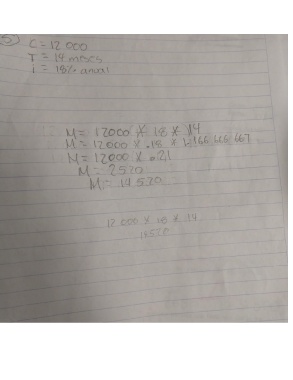 5) C = 12 000
T = 14 meses
i = 18% anual
M = 12000 * 18 * 14
M = 12000 x .18 x 1.166 666 667
M = 12000 x .21
M = 2520
M = 14520
12 000 x 18 x 14
14520